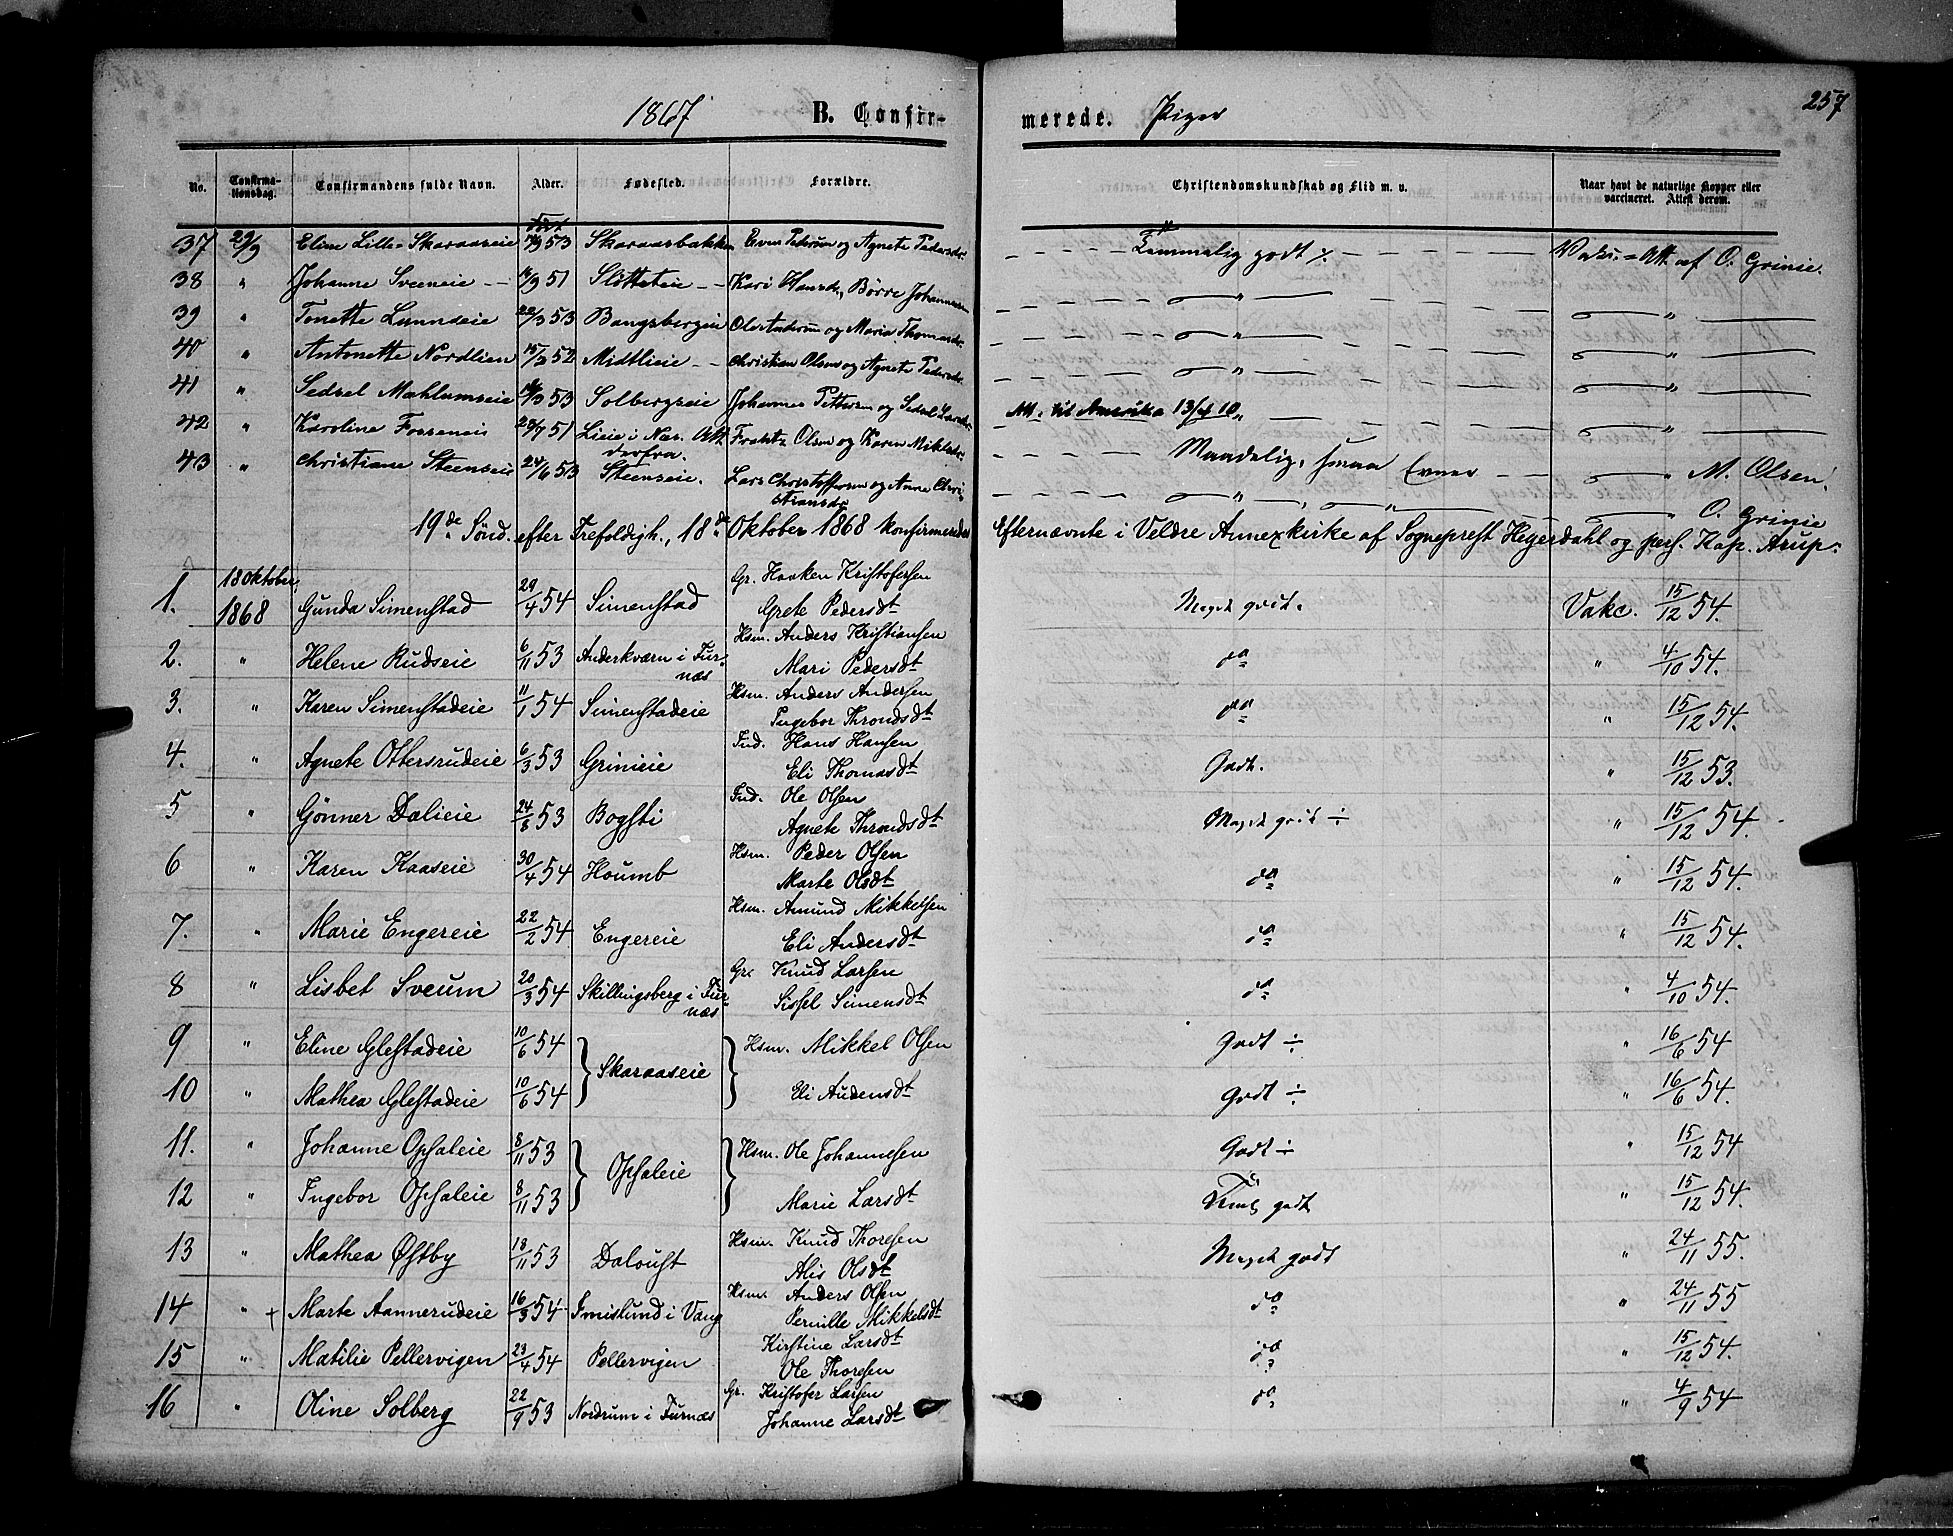 257
1867 B. Confirmerede. Piger
No. Confirmationsdag. Confirmandens fulde Navn. Alder. Fødested. Forældre. Christendomskundskab og Flid m. v. Naar havt de naturlige Kopper eller vaccineret. Attest derom.
37 29/9 Eline Lille-Skaraaseie 53 Skaraasbakken Even Pedersen og Agnete Pedersdr. Temmelig godt Vaks. Att. af O. Grinie.
38 " Johanne Sveeneie 51 Slötteteie Kari Hansdr, Börre Johannesen
39 " Tonette Lunndeie 22/3 53 Bangsbergeie Ole Andersen og Maria Thomasdr.
40 " Antonette Nordlien 52 Midtlieie Christian Olsen og Agnete Pedersdr.
41 " Sedsel Mæhlumseie 53 Solbergseie Johannes Pettersen og Sedsel Larsdr.
Att. til Amerika 13/4 10.
42 " Karoline Fosseneie 51 Lieie i Næs. Att. derfra. Frants Olsen og Karen Mikkelsdr. Maadelig, smaa Evner M. Olsen.
43 " Christiane Steenseie 24/6 53 Steenseie. Lars Christoffersen og Anne Christiansdr. O. Grinie
19de Sønd. efter Trefoldigh., 18de Oktober 1868 konfirmeredes Efternævnte i Veldre Annexkirke af Sogneprest Heyerdahl og pers. Kap. Arup.
1. 18 Oktober 1868 Gunda Simenstad 29/4 54 Simenstad Gr. Haaken Kristofersen Grete Pedersdt Meget godt. Vakc. 15/12 54.
2. " Helene Rudseie 6/11 53 Anderkværn i Furnæs Hsm. Anders Kristiansen Mari Pedersdt do " 4/10 54.
3. " Karen Simenstadeie 11/1 54 Simenstadeie Hsm. Anders Andersen Ingebor Throndsdt do " 15/12 54.
4. " Agnete Ottersrudeie 6/3 53 Grinieie Ind. Hans Hansen Eli Thomasdt Godt. " 15/12 53.
5 " Gönner Dalieie 24/8 53 Bogsti Ind. Ole Olsen Agnete Throndsdt Meget godt ÷ " 15/12 54.
6 " Karen Kaaseie 30/4 54 Houmb Hsm. Peder Olsen Marte Olsdt do " 15/12 54.
7. " Marie Engereie 22/2 54 Engereie Hsm. Amund Mikkelsen Eli Andersdt do " 15/12 54.
8 " Lisbet Sveum 20/3 54 Skillingsberg i Furnæs Gr. Knud Larsen Sissel Simensdt do " 4/10 54.
9 " Eline Glestadeie 10/6 54 Skaraaseie Hsm. Mikkel Olsen Godt ÷ " 16/6 54
10 " Mathea Glestadeie 10/6 54 Eli Audensdt Godt ÷ " 16/6 54.
11. " Johanne Opsaleie 8/11 53 Opsaleie Hsm. Ole Johannesen Godt ÷ " 15/12 54
12 " Ingebor Opsaleie 8/11 53 Marie Larsdt Teml. godt " 15/12 54.
13 " Mathea Østby 18/11 53 Daloust Hsm. Knud Thoresen Alis Olsdt Meget godt " 24/11 55.
14 " + Marte Aannerudeie 16/3 54 Smislund i Vang Hsm. Anders Olsen Pernille Mikkelsdt do " 24/11 55
15 " Matilie Pellervigen 23/4 54 Pellervigen Kirstine Larsdt Ole Thoresen do " 15/12 54.
16 " Oline Solberg 22/9 53 Nordrum i Furnæs Gr. Kristofer Larsen Johanne Larsdt do " 4/9 54